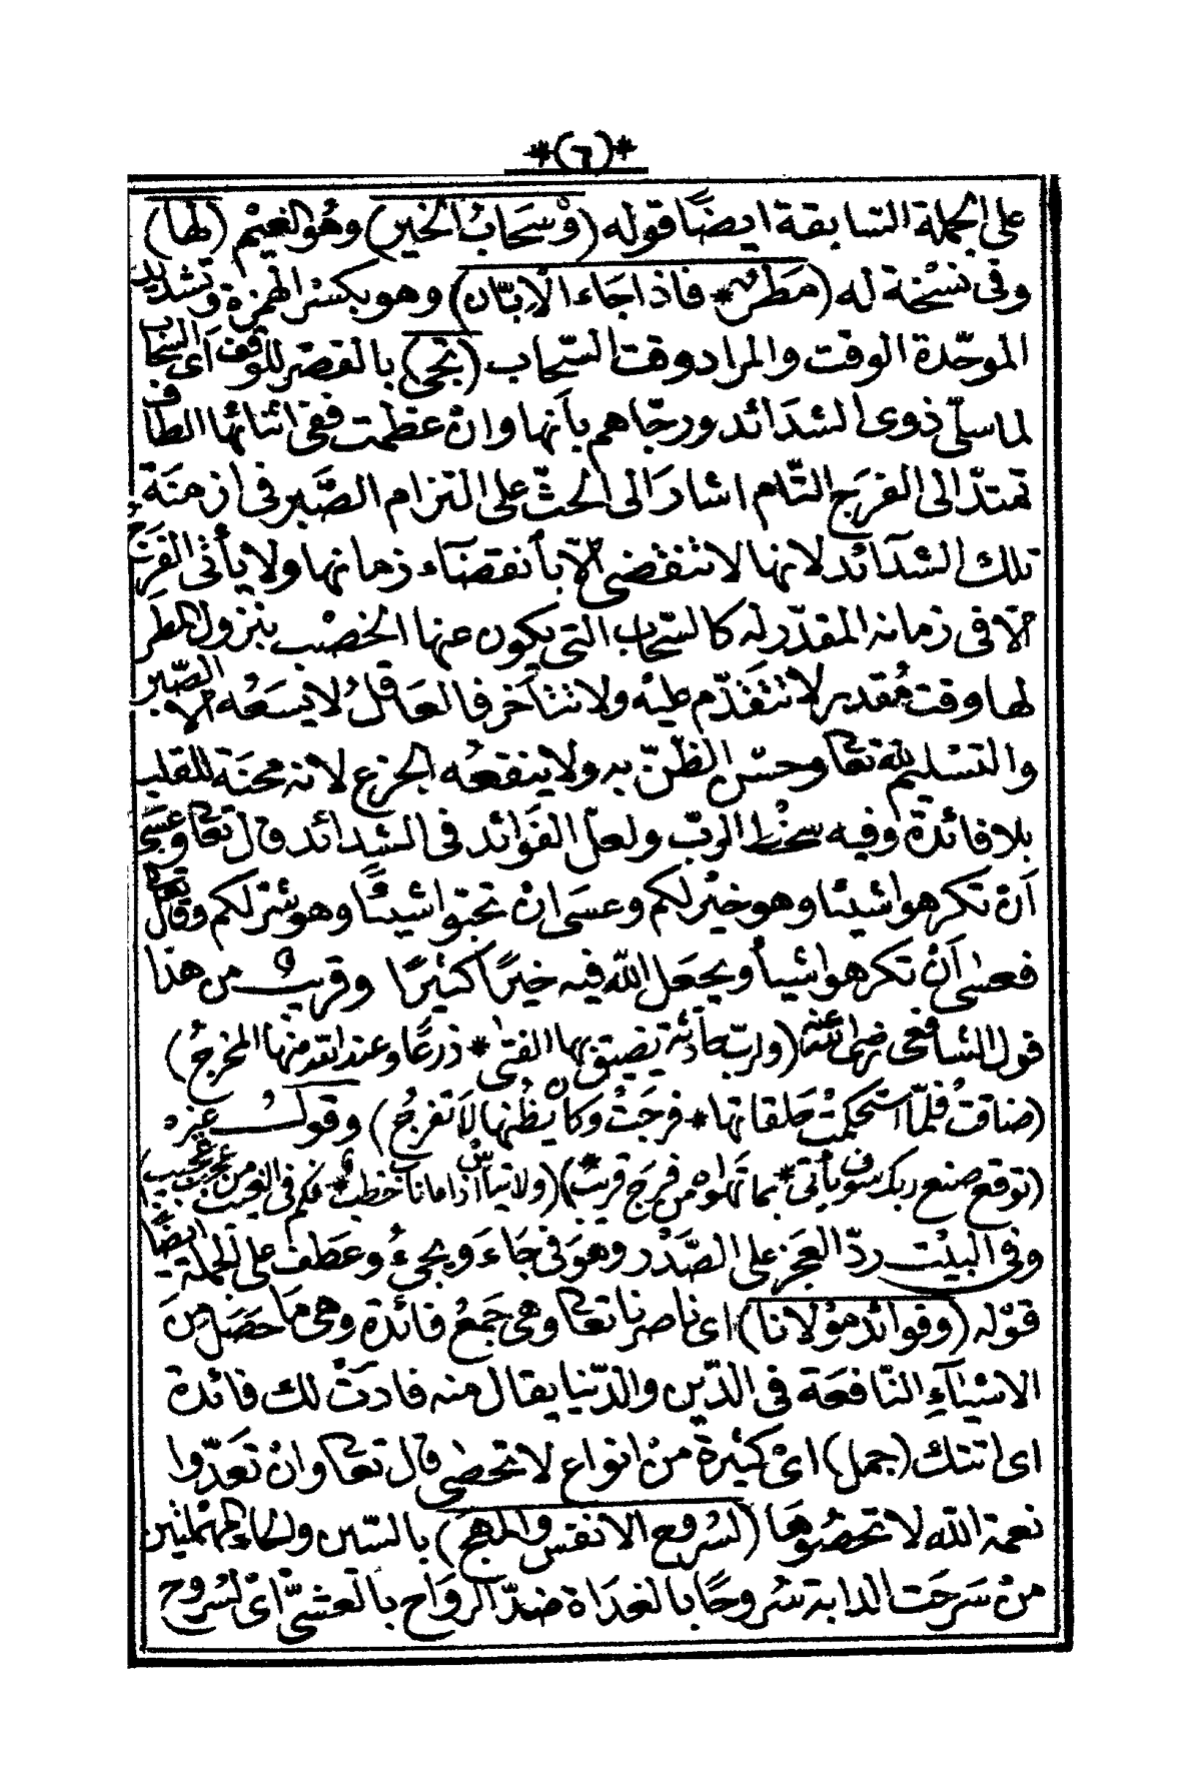 *(٦)*
على الجملة السابقة ايضًا قوله (وَسَحَابُ الخير) وهُو الغيْم (لها)
وفى نسْخة له (مَطَرٌ * فاذاجَاءَ الْاِبّان) وهو بكسْر الهمزة وتشديد
الموحّدة الوقت والمراد وقت السّحاب (تجى) بالقصْر للوقف اى السحاب
لما سلّى ذوى الشدَائد ورجّاهم بأنها وانْ عظمت ففى اثنائها الطاف
تمتدّ الى الفرَج التّام اشارَ الى الحثّ على التزام الصَّبر فى ازمنَة
تلك الشدَآئد لانها لاتنقضى الّا بأنقضآء زمانها ولا يأتى الفرَجُ
الّا فى زمانه المقدّر له كالسّحاب التى يكون عنها الخصْب بنزول المطَر
لها وقت مُقدر لا تتقدّم عليْه ولا تتأخر فالعَاقلُ لا يسَعُه الا الصّبر
والتسْليم لله تعالى وحسْن الظنّ به ولا ينفعُه الجزع لانه محنَة للقلب
بلا فائدة وفيه سخْط الربّ ولعلّ الفوَائد فى الشدائد قال تعالى وعسَى
اَنْ تكرهوا شيئا وهو خيْر لكم وعسَى انْ تحبّوا شيئًا وهو شرّ لكم وقال تعالى
فعسٰى اَنْ تكرهوا شيأ ويجعَل الله فيه خيرًا كثيرًا وقريب من هذا
قول الشافعى رضى الله عنه (ولربّ حَادثة يضيق بها الفتى * ذرعًا وعند الله منها المخرجُ)
(ضاقتْ فلمّا استحكمتْ حَلقاتها * فرجَتْ وكان يظُنها لَا تفرجُ) وقولُ غيره
(توقع صنع ربك سوف يأتى * بما تهواه من فرج قريب *) (ولا تيأس اذا ما ناب خطب * فكم فى الغيب من عجب عجيب)
وفى البيْت ردّ العجَز على الصّدْر وهوَ فى جَاءَ وَيجىءُ وعَطف على الجملة ايضًا
قوْله (وفوائد موْلانا) اى ناصرنا تعالى وهى جَمعُ فائدة وهى مَا حصَل من
الاشيَآءِ النّافعَة فى الدّين والدّنيا يقال منه فادَتْ لك فائدة
اى اتتك (جمل) اىْ كثيرة منْ انواع لا تحصٰى قال تعالى وانْ تعَدّوا
نعمة الله لا تحصُوهَا (لسُروح الانفس والمهج) بالسّين والحاء المهْملتين
منْ سَرحَت الدابة سُروحًا بالغدَاة ضدّ الرّوَاح بالعشىّ اىْ لسُروح